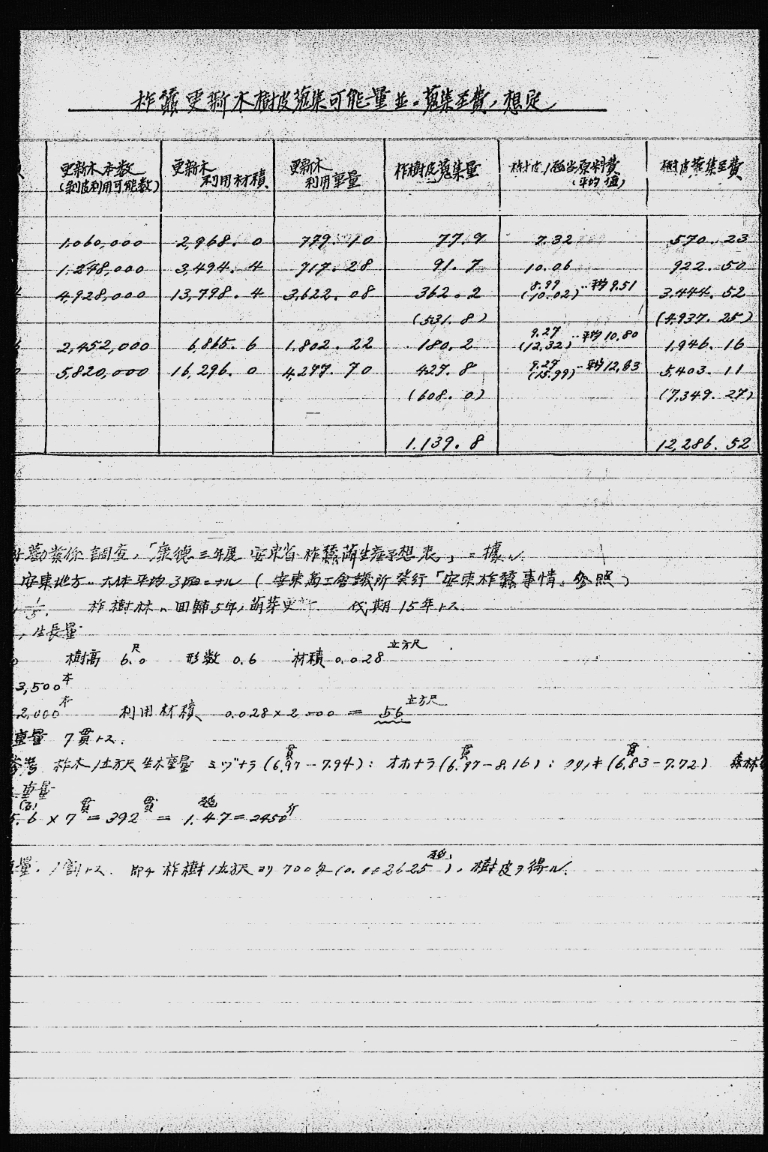 柞蠶更新木樹皮蒐集可能量並ニ蒐集全費ノ想定
更新木本数 更新木 更新木 柞樹皮蒐集量 樹皮1瓲当原料費 樹皮蒐集全費
(剥皮利用可能数) 利用材積 利用重量 (平均値)
1,060,000 2,968.0 779.10 77.9 7.32 570.23
1,248,000 3,494.4 917.28 91.7 10.06 922.50
4,928,000 13,798.4 3,622.08 362.2 8.99 (10.02) 平均9.51 3,444.52
(531.8) (4,937.25)
2,452,000 6,865.6 1,802.22 180.2 9.27 (12.32) 平均10.80 1,946.16
5,820,000 16,296.0 4,277.70 427.8 9.27 (15.99) 平均12.63 5,403.11
(608.0) (7,349.27)
1,139.8 12,286.52
調査,「康徳三年度 安東省柞蠶繭生産予想表」ニ據ル
安東地方ハ大体平均3 ナル (安東商工会議所発行「安東柞蠶事情」参照)
1/5. 柞樹林ハ回歸5年,萌芽更 伐期15年トス.
,生長量
樹高 6.0尺 形数 0.6 材積 0.028立方尺
3,500本
2,000本 利用材積 0.028×2000=56立方尺
重量 7貫トス.
参考 柞木1立方尺生木重量 ミヅナラ(6.97-7.94貫):オホナラ(6.97-8.16貫):クヌギ(6.83-7.72貫) 森林
重量
5.6×7貫=392貫=1.47瓲=2450斤
量ノ1割トス. 即チ柞樹1立方尺ヨリ700匁(0.002625瓲)ノ樹皮ヲ得ル.